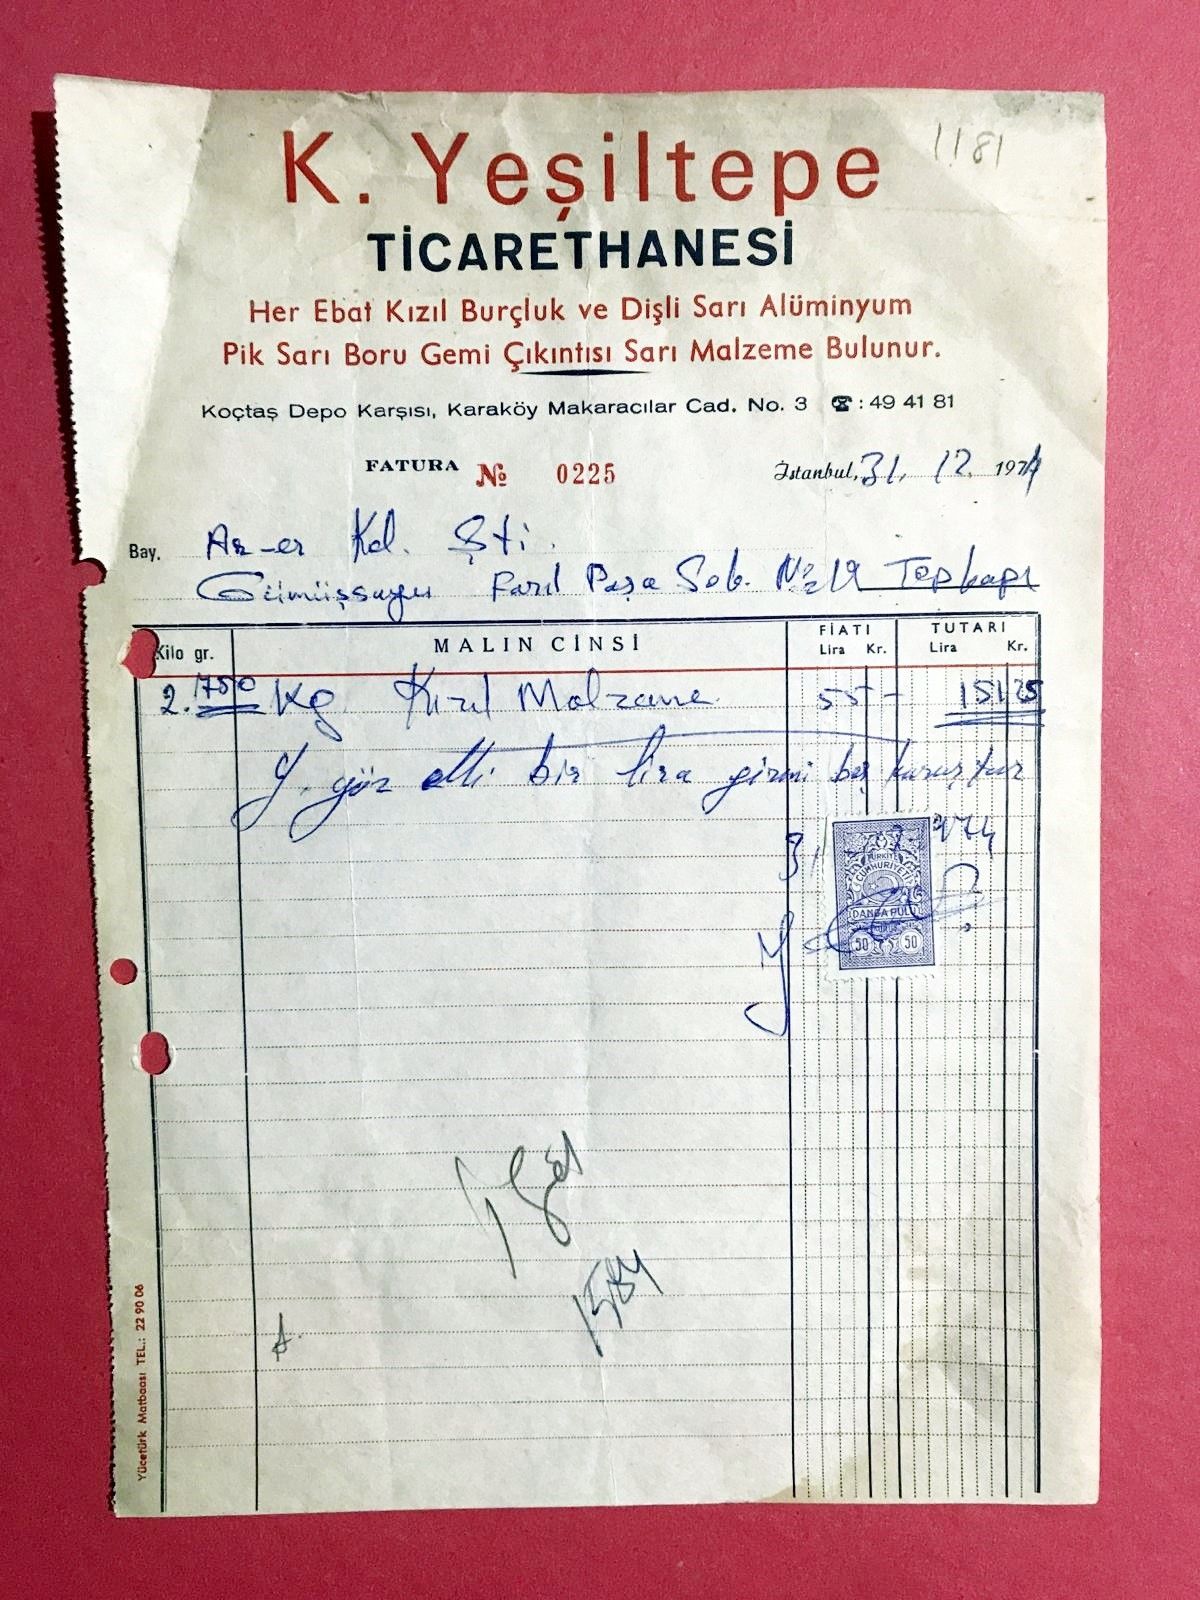 1181
K. Yeşiltepe
TİCARETHANESİ
Her Ebat Kızıl Burçluk ve Dişli Sarı Alüminyum
Pik Sarı Boru Gemi Çıkıntısı Sarı Malzeme Bulunur.
Koçtaş Depo Karşısı, Karaköy Makaracılar Cad. No. 3 ☎ : 49 41 81
FATURA № 0225 İstanbul, 31. 12. 1974
Bay. Ar-er Kol. Şti.
Gümüşsuyu Paşa Sok. Topkapı
Kilo gr. MALIN CİNSİ FİATI Lira Kr. TUTARI Lira Kr.
2.750 Kg Kızıl Malzame 55 - 151 25
Y. yüz elli bir lira yirmi beş kuruştur
TÜRKİYE
CUMHURİYETİ
DAMGA PULU
50 50
Yücetürk Matbaası TEL.: 22 90 06